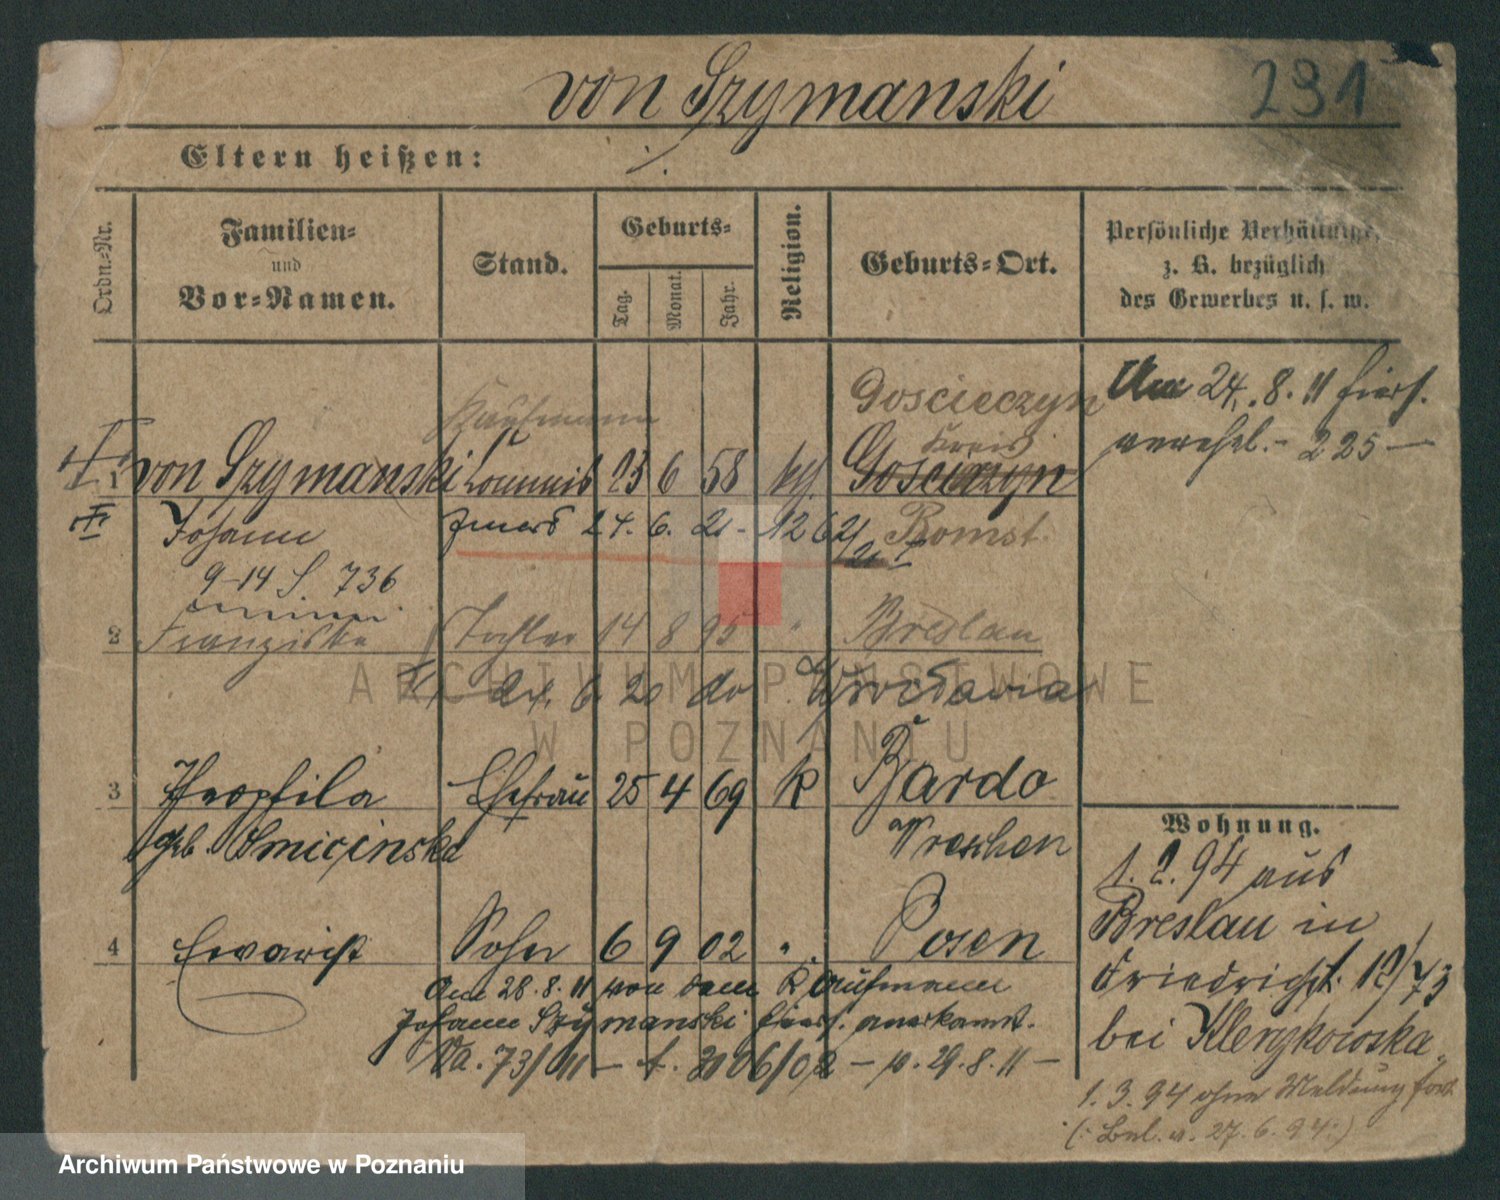 von Szymanski
291
Eltern heißen: ./.
Ordn.-Nr.
Familien-
und
Vor-Namen.
Stand.
Geburts-
Tag.
Monat.
Jahr.
Religion.
Geburts-Ort.
Persönliche Verhältnisse,
z. B. bezüglich
des Gewerbes u. s. w.
Kaufmann
Goscieczyn
Kreis
1 von Szymanski Commis 23 6 58 kth. Gosciezyn
Johann
24. 6. 21 - 1262/21 Bomst.
9-14 S. 736
2 Franziska Tochter 14 8 95 " Breslau
24. 6. 20 do Wrocławia
3 Theophila Ehefrau 25 4 69 k Bardo
geb. Smicinska Wreschen
4 Ewarist Sohn 6 9 02 " Posen
Am 28.8.11 von dem Kaufmann
Johann Szymanski hiers. anerkannt.
Va. 73/11 - 2006/02 - v. 29.8.11 -
Am 24. 8. 11 hiers.
verehel. - 225 -
Wohnung.
1. 2. 94 aus
Breslau in
Friedrichst. 12/73
bei Klerykowska
1. 3. 94 ohne Meldung fort
(: Bel. v. 27. 6. 94 :)
ARCHIWUM PAŃSTWOWE
W POZNANIU
Archiwum Państwowe w Poznaniu